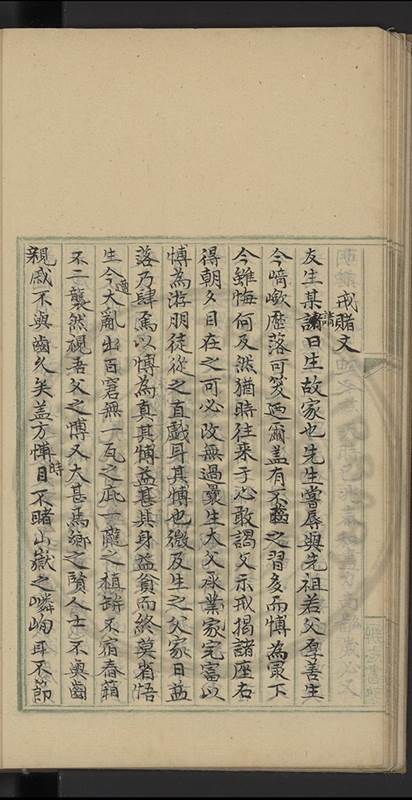 戒賭文
友生某請曰生故家也先生嘗辱與先祖若父厚善生
今﨑嶔歷落可笑廼爾蓋有不齒之習多而愽為最下
今雖悔何及然猶時往來于心敢謁文示戒揭諸座右
得朝夕目在之可必改無過曩生大父承業家完富以
愽為游朋徒從之直戲耳其愽也微及生之父家日益
落乃肆焉以愽為真其愽益甚其身益貧而終莫省悟
生今遭大亂出百窘無一瓦之庇一隴之植缾不宿舂箱
不二襲然視吾父之愽又大甚焉鄉之賢人士不與齒
親戚不與齒久矣蓋方愽時目不睹山嶽之嶙峋耳不節